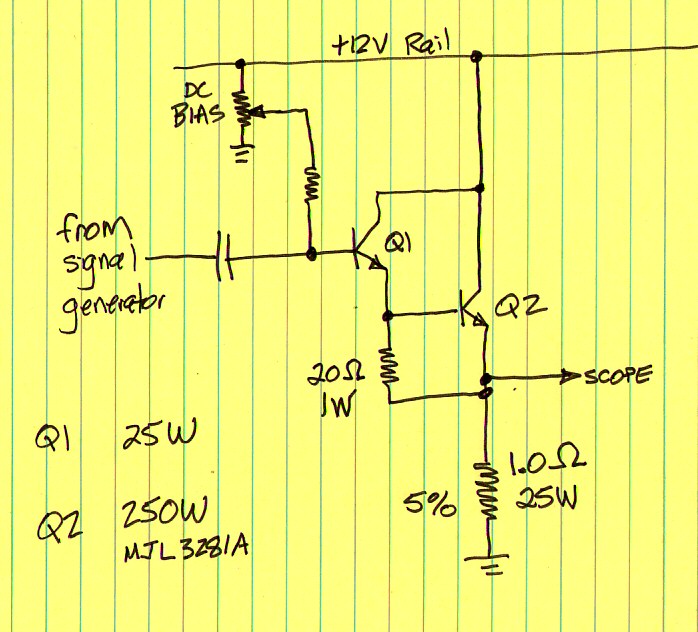 +12V Rail
DC
BIAS
from
signal
generator
Q1
Q2
20Ω
1W
SCOPE
1.0Ω
25W
5%
Q1 25W
Q2 250W
MJL3281A